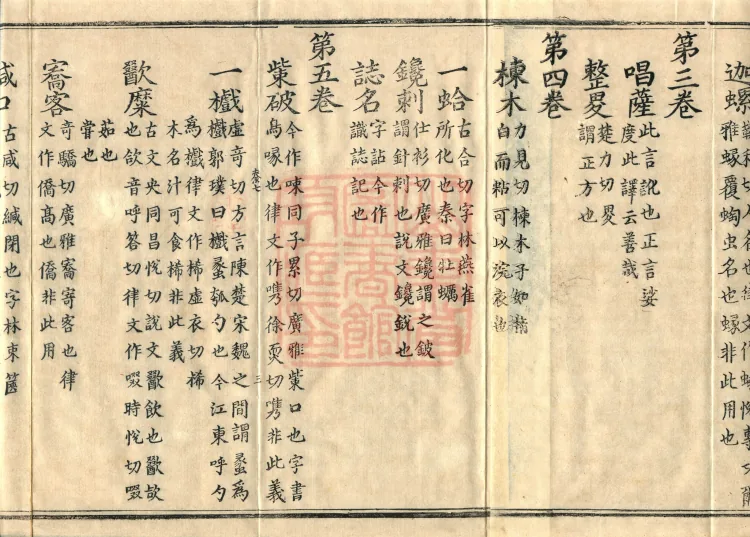 迦螺
雅蝝蝮蜪虫名也蝝非此用也
第三卷
唱薩
此言訛也正言娑
度此譯云善哉
整畟
楚力切畟
謂正方也
第四卷
楝木
力見切楝木子如指
白而粘可以浣衣也
一蛤
古合切字林燕雀
所化也秦曰壯蠣
鑱刺
仕衫切廣雅鑱謂之鈹
謂針刺也說文鑱銳也
誌名
字詁今作
識誌記也
第五卷
紫破
今作㖢同子累切廣雅紫口也字書
鳥喙也律文作徐耎切非此義
卷七
三
一㰕
虛奇切方言陳楚宋魏之間謂蠡為
㰕郭璞曰㰕蠡瓠勺也今江東呼勺
為㰕律文作桸虛衣切桸
木名汁可食桸非此義
歠糜
古文吷同昌悅切說文歠飲也歠欱
也欱音呼荅切律文作啜時悅切啜
茹也
嘗也
㝯客
奇驕切廣雅㝯寄客也律
文作僑高也僑非此用
咸口
古咸切緘閉也字林束篋